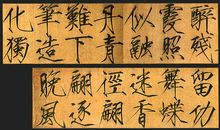 醉殘
霞照
似融
丹青
難下
筆造
化獨
留功
舞蝶
迷香
徑翩
翩逐
晚風